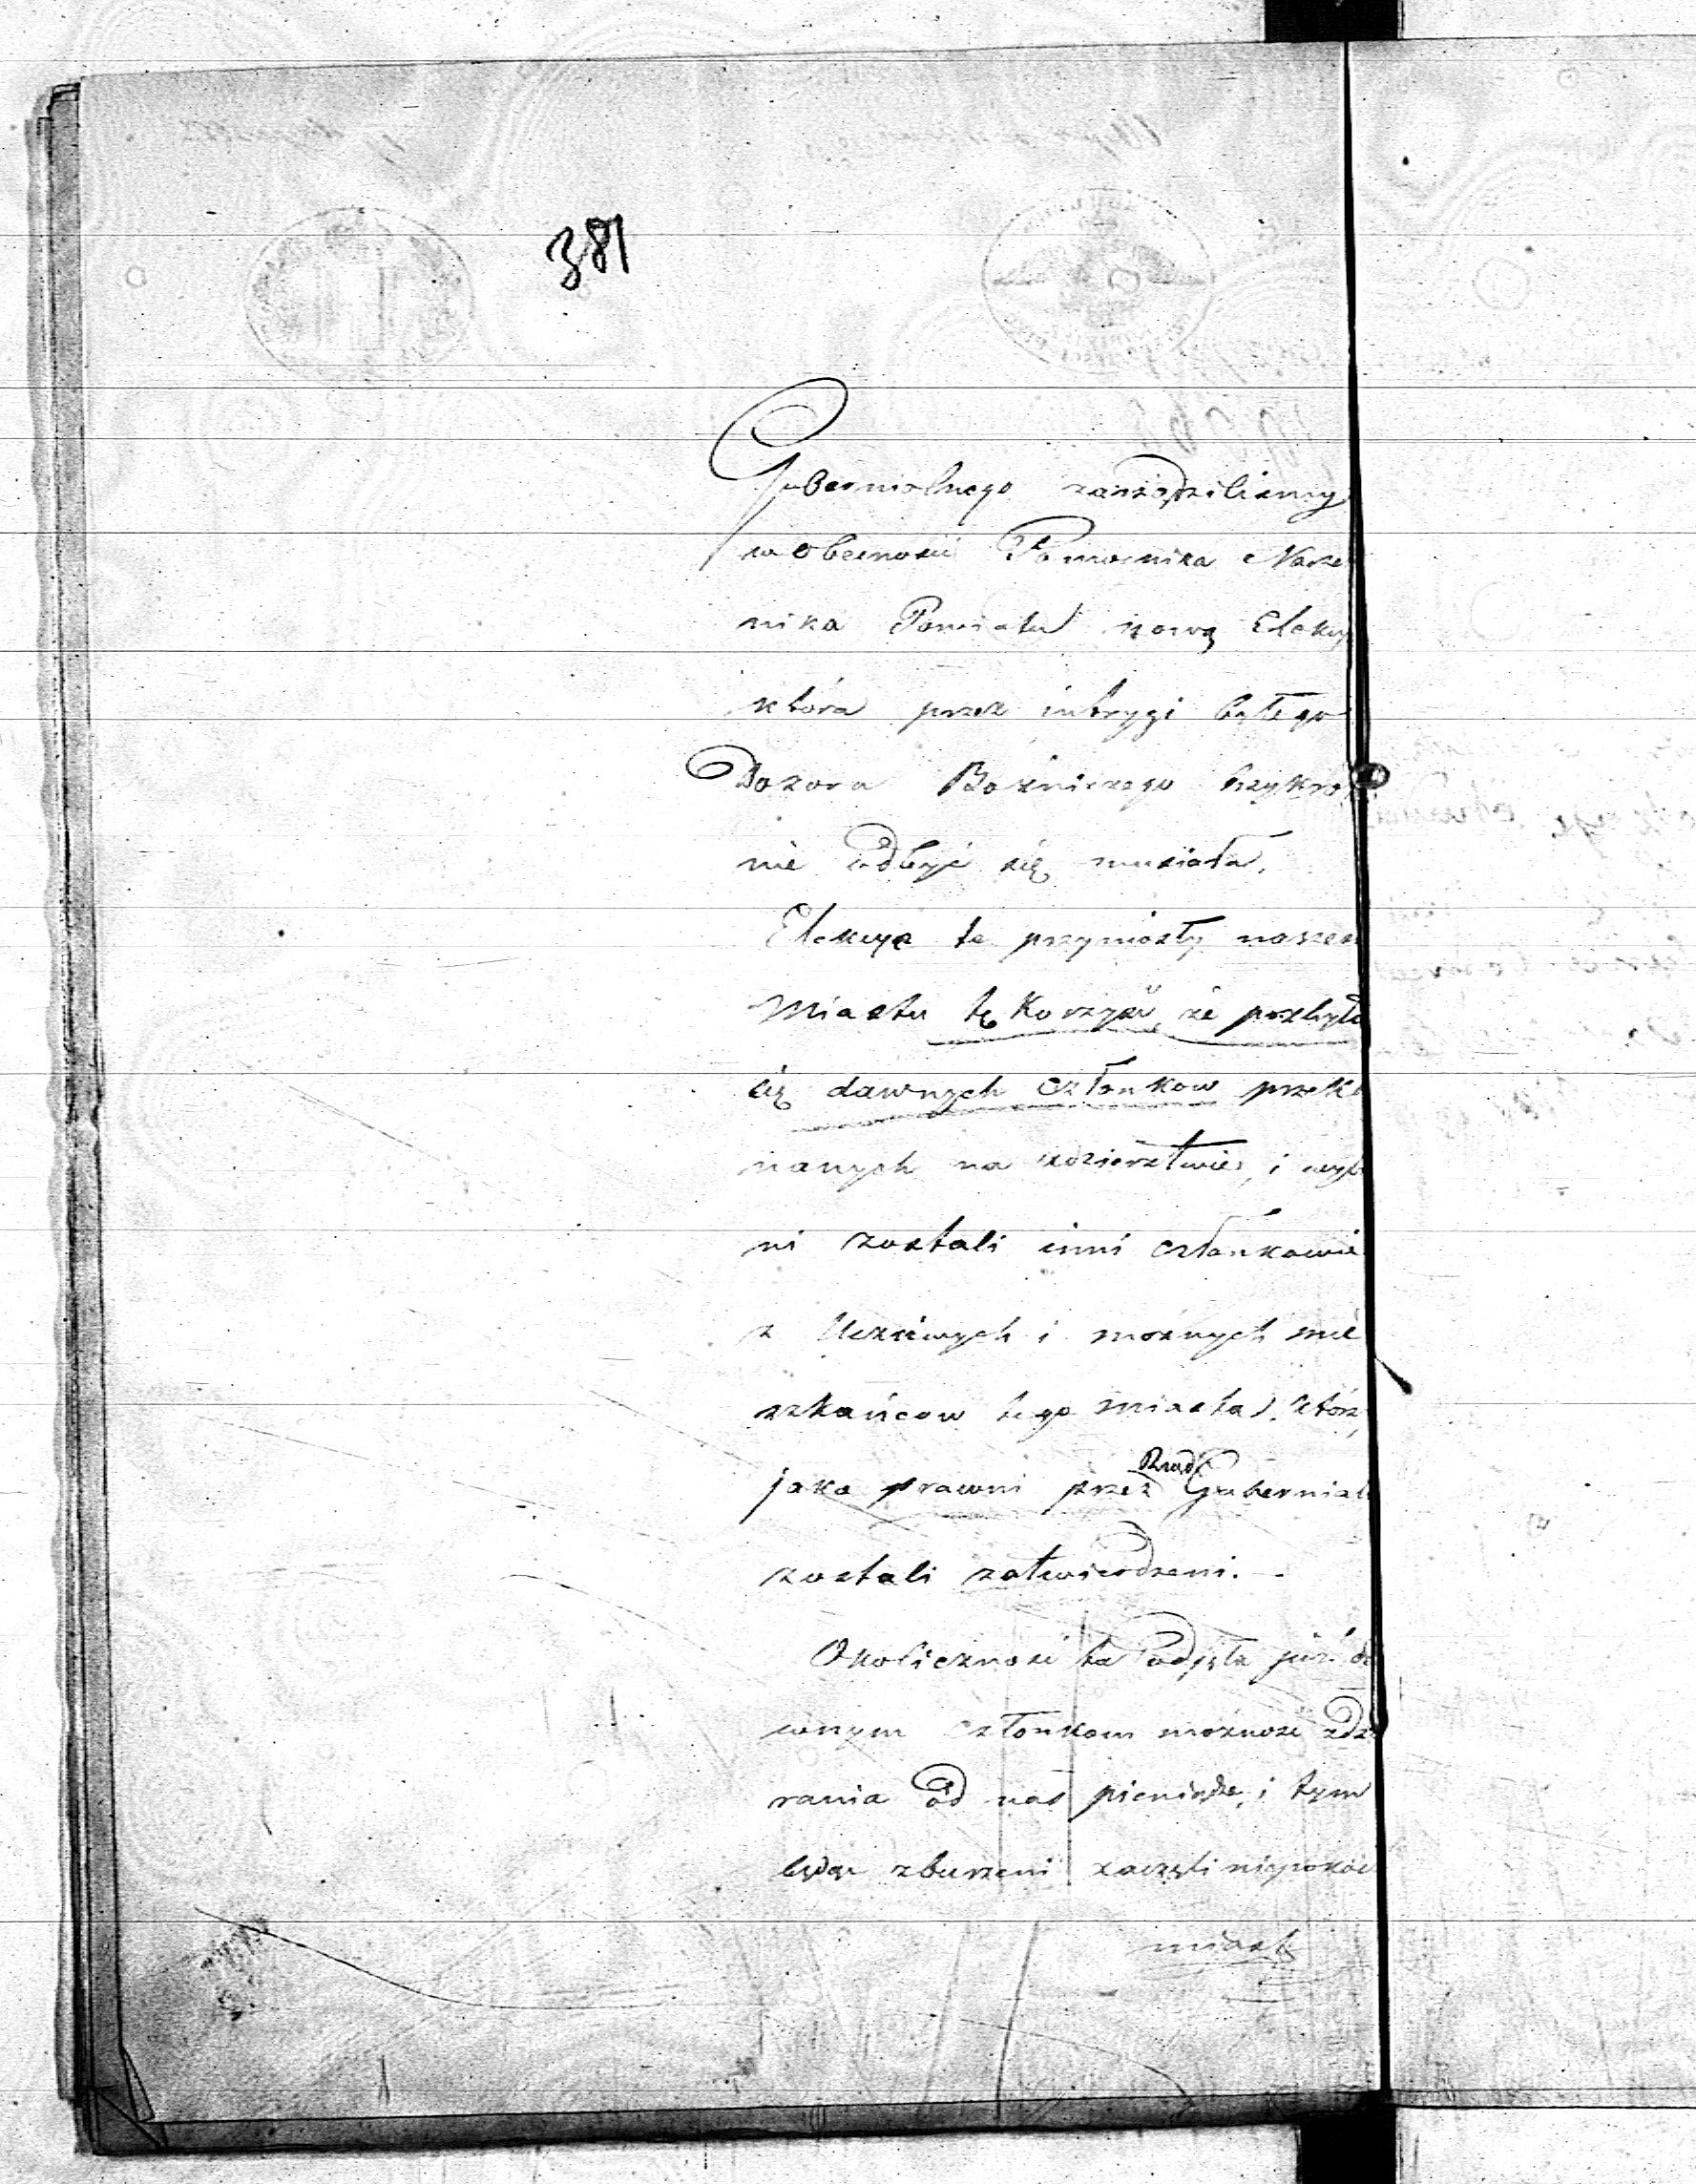 381
Gubernialnego zarządziliśmy
w obecności Pomocnika Nacze
nika Powiatu nową Elekcy
która przez intrygi byłego
Dozoru Bożniczego trzykro
nie odbyć się musiała,
Elekcye te przyniosły naszem
Miastu tę Korzyść, że pozbyło
się dawnych członków przeko
nanych na zdzierstwie, i wyb
ni zostali inni członkowie
z Uczciwych i możnych mie
szkańców tego miasta, którz
jako prawni przez Rząd Gubernial
zostali zatwierdzeni. -
Okoliczność ta odjęła już da
wnym członkom możność zdzi
rania od nas pieniędze, i tym
będąc zburzeni zaczęli niepokoić
miasto